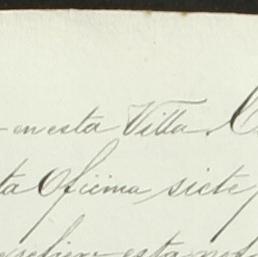 en esta Villa
ta Oficina siete
esta